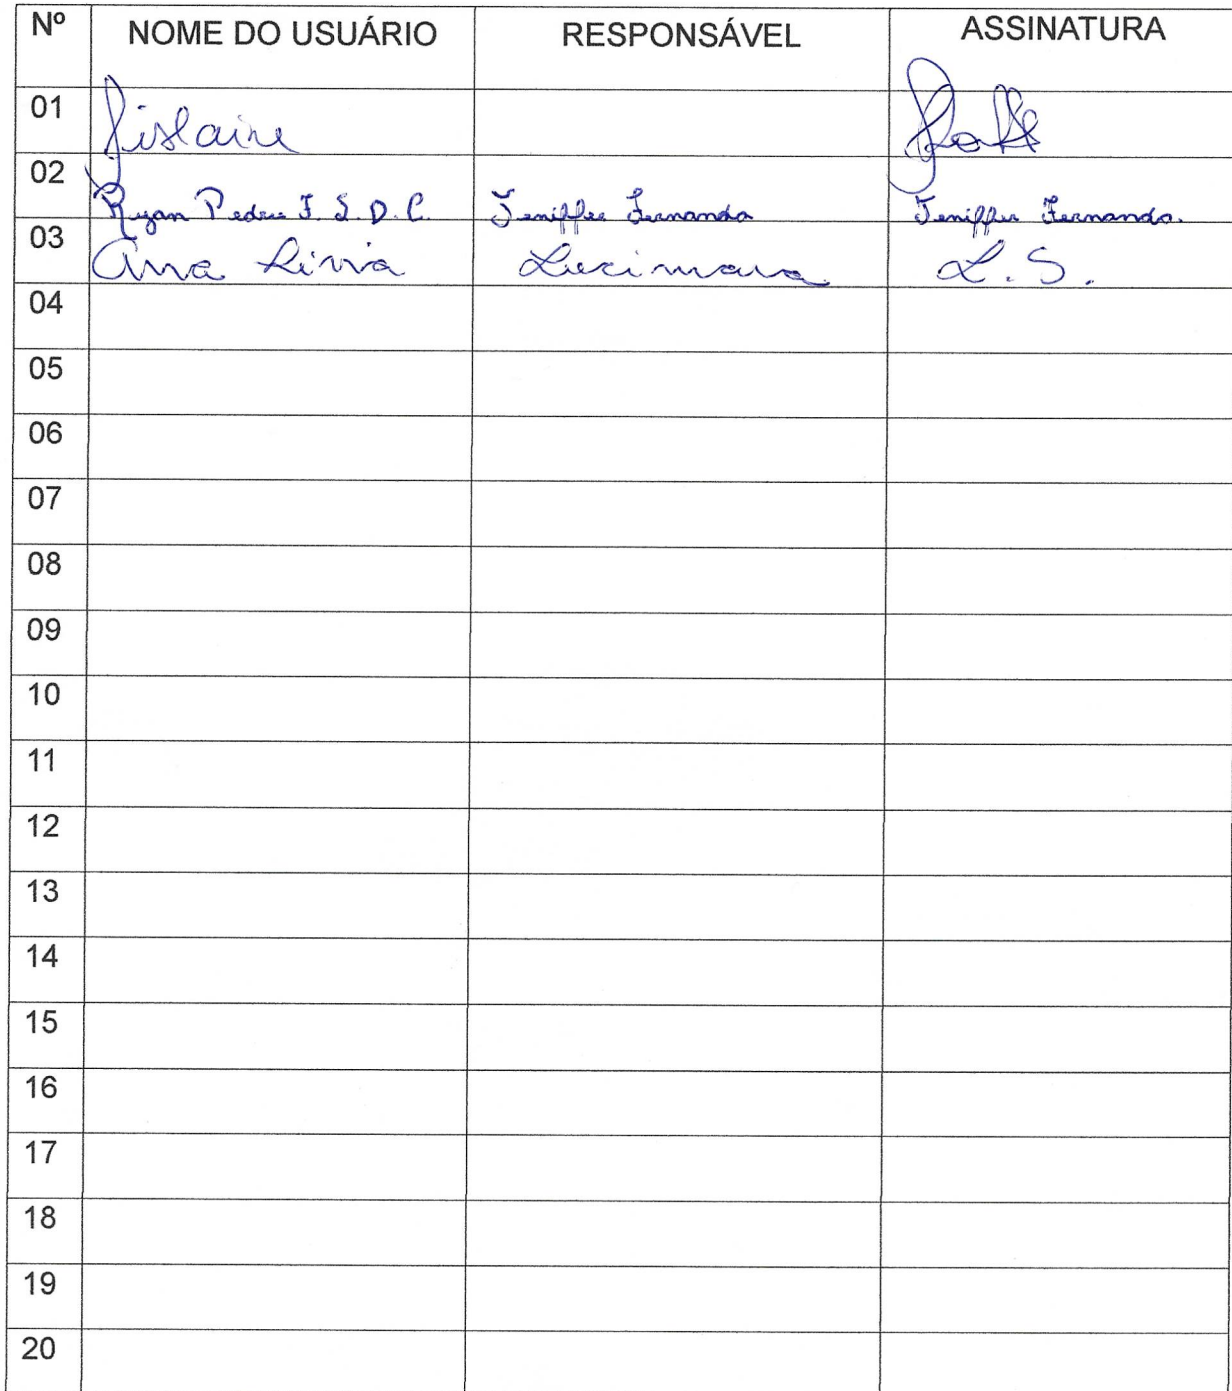 Nº NOME DO USUÁRIO RESPONSÁVEL ASSINATURA
01 Gislaine
02 Ryan Pedro F. S. D. C. Jeniffer Fernanda Jeniffer Fernanda.
03 Ana Livia Lucimara L. S.
04
05
06
07
08
09
10
11
12
13
14
15
16
17
18
19
20